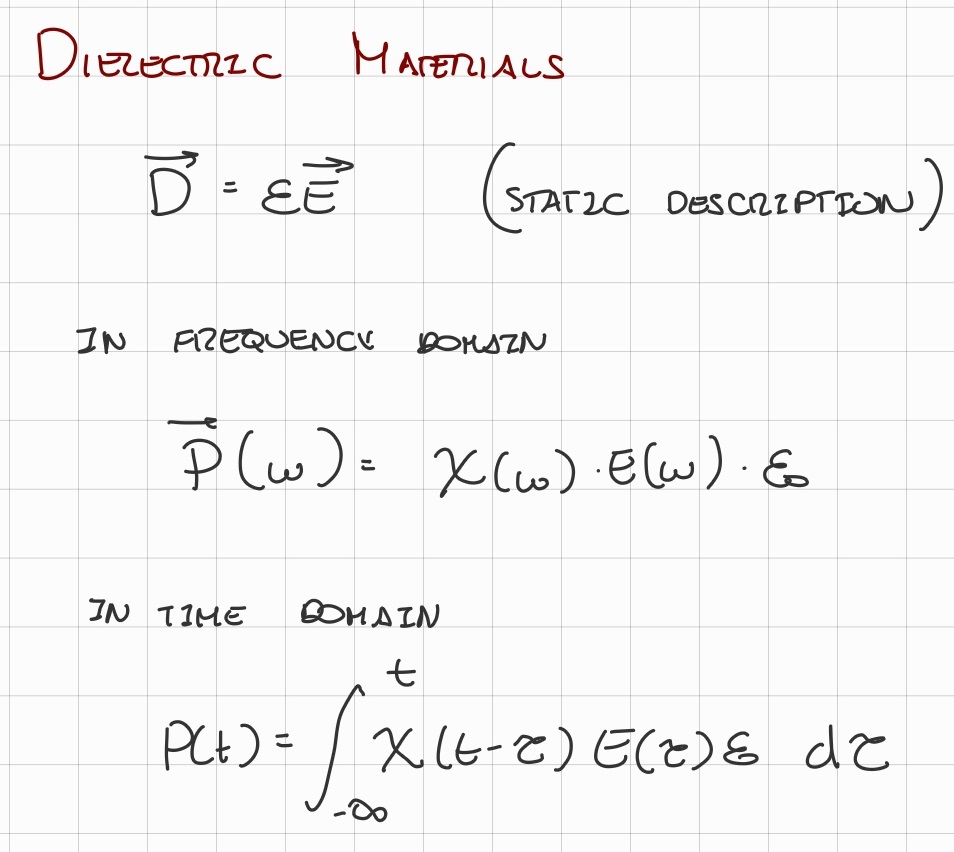 DIELECTRIC MATERIALS
D⃗ = εE⃗ (STATIC DESCRIPTION)
IN FREQUENCY DOMAIN
P⃗(ω) = χ(ω) · E(ω) · ε₀
IN TIME DOMAIN
P(t) = ∫_{-∞}^{t} χ(t-τ) E(τ) ε dτ